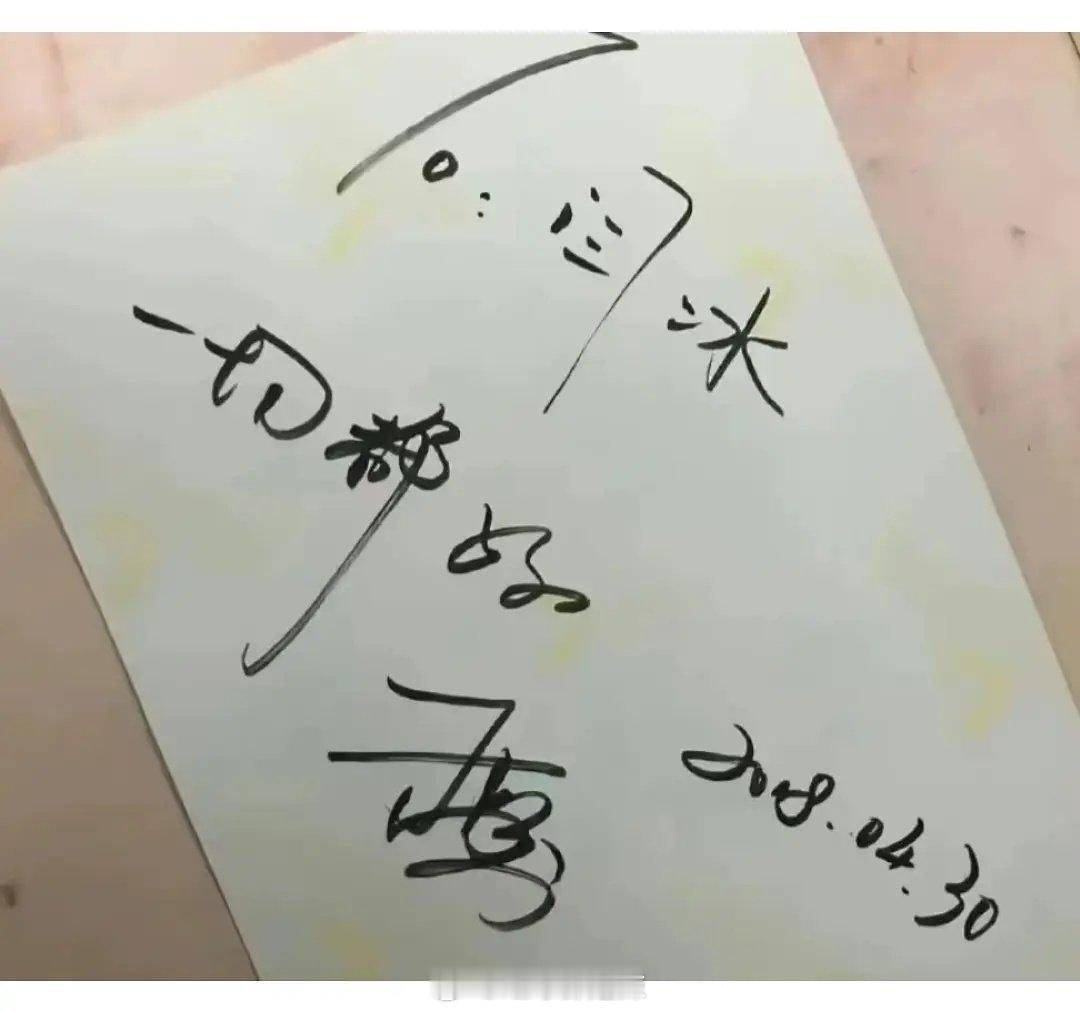 To: 闫冰
一切都好
2018.04.30